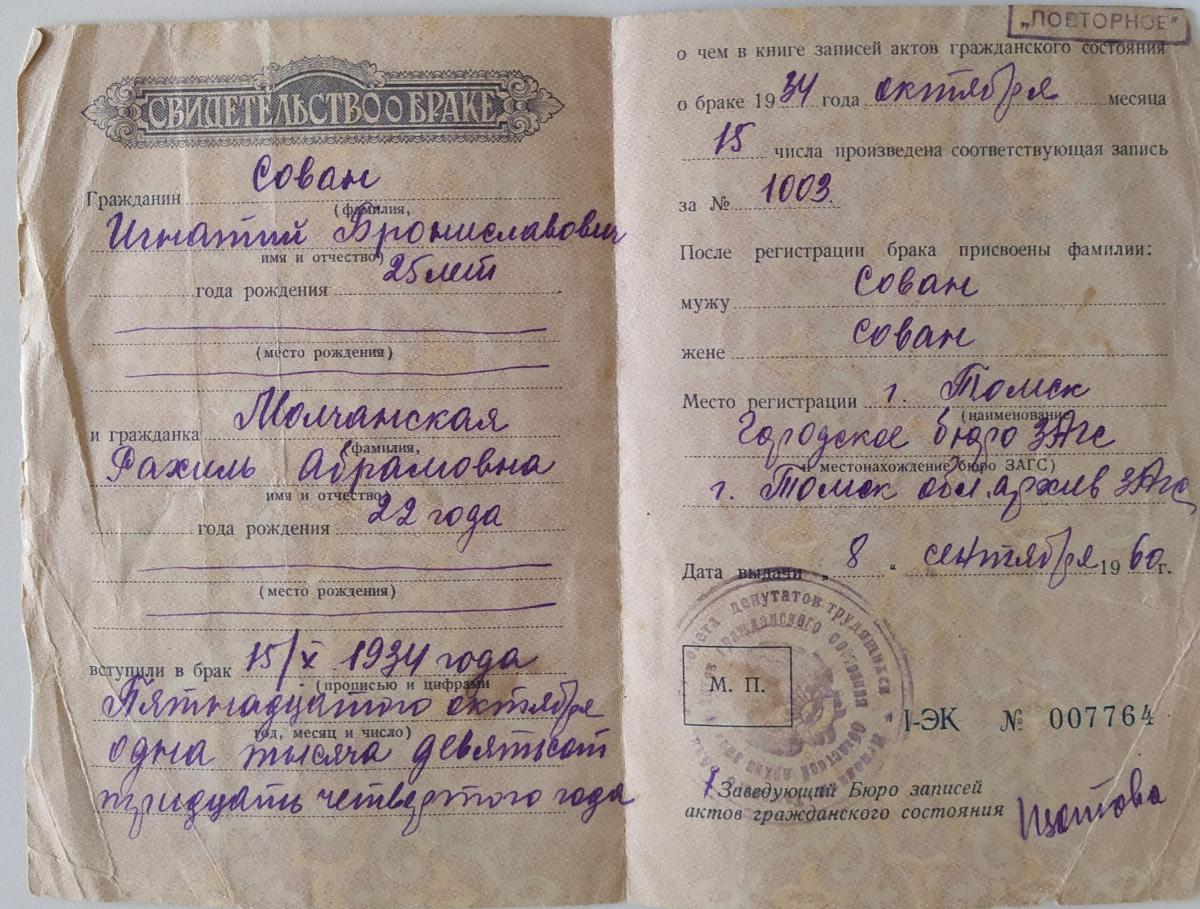 СВИДЕТЕЛЬСТВО О БРАКЕ
Гражданин Сован
(фамилия,
Игнатий Брониславович
имя и отчество)
года рождения 25 лет
(место рождения)
и гражданка Молчанская
(фамилия,
Рахиль Абрамовна
имя и отчество)
года рождения 22 года
(место рождения)
вступили в брак 15/X 1934 года
(прописью и цифрами
Пятнадцатого октября
год, месяц и число)
одна тысяча девятьсот
тридцать четвертого года
„ПОВТОРНОЕ"
о чем в книге записей актов гражданского состояния
о браке 1934 года октября месяца
15 числа произведена соответствующая запись
за № 1003.
После регистрации брака присвоены фамилии:
мужу Сован
жене Сован
Место регистрации г. Томск
(наименование
Городское бюро ЗАГС
и местонахождение бюро ЗАГС)
г. Томск обл. архив ЗАГС
Дата выдачи „ 8 " сентября 1960 г.
депутатов трудящихся
гражданского состояния
Областной архив
М. П.
I-ЭК № 007764
Заведующий Бюро записей
актов гражданского состояния